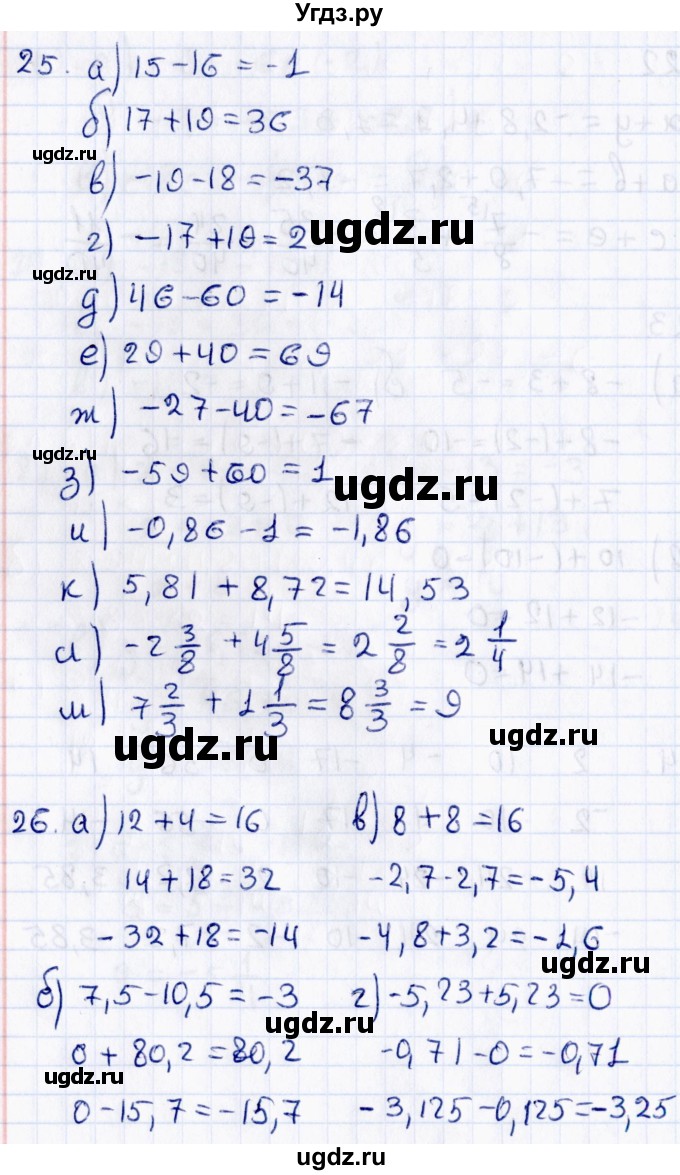 Угдз.ру
25. а) 15-16 = -1
б) 17+19=36
ugdz.ru
в) -19-18=-37
г) -17+19=2
ugdz.ru
ugdz.ru
д) 46-60 = -14
е) 29+40=69
ж) -27-40=-67
ugdz.ru
з) -59+60=1
ugdz.ru
и) -0,86-1 = -1,86
к) 5,81 + 8,72=14,53
л) -2 3/8 + 4 5/8 = 2 2/8 = 2 1/4
м) 7 2/3 + 1 1/3 = 8 3/3 = 9
ugdz.ru
ugdz.ru
26. а) 12+4=16
14+18=32
-32+18=-14
б) 7,5-10,5=-3
0+80,2=80,2
0-15,7=-15,7
в) 8+8=16
-2,7-2,7=-5,4
-4,8+3,2=-1,6
г) -5,23+5,23=0
-0,71-0=-0,71
-3,125-0,125=-3,25
ugdz.ru
ugdz.ru
ugdz.ru
ugdz.ru
ugdz.ru